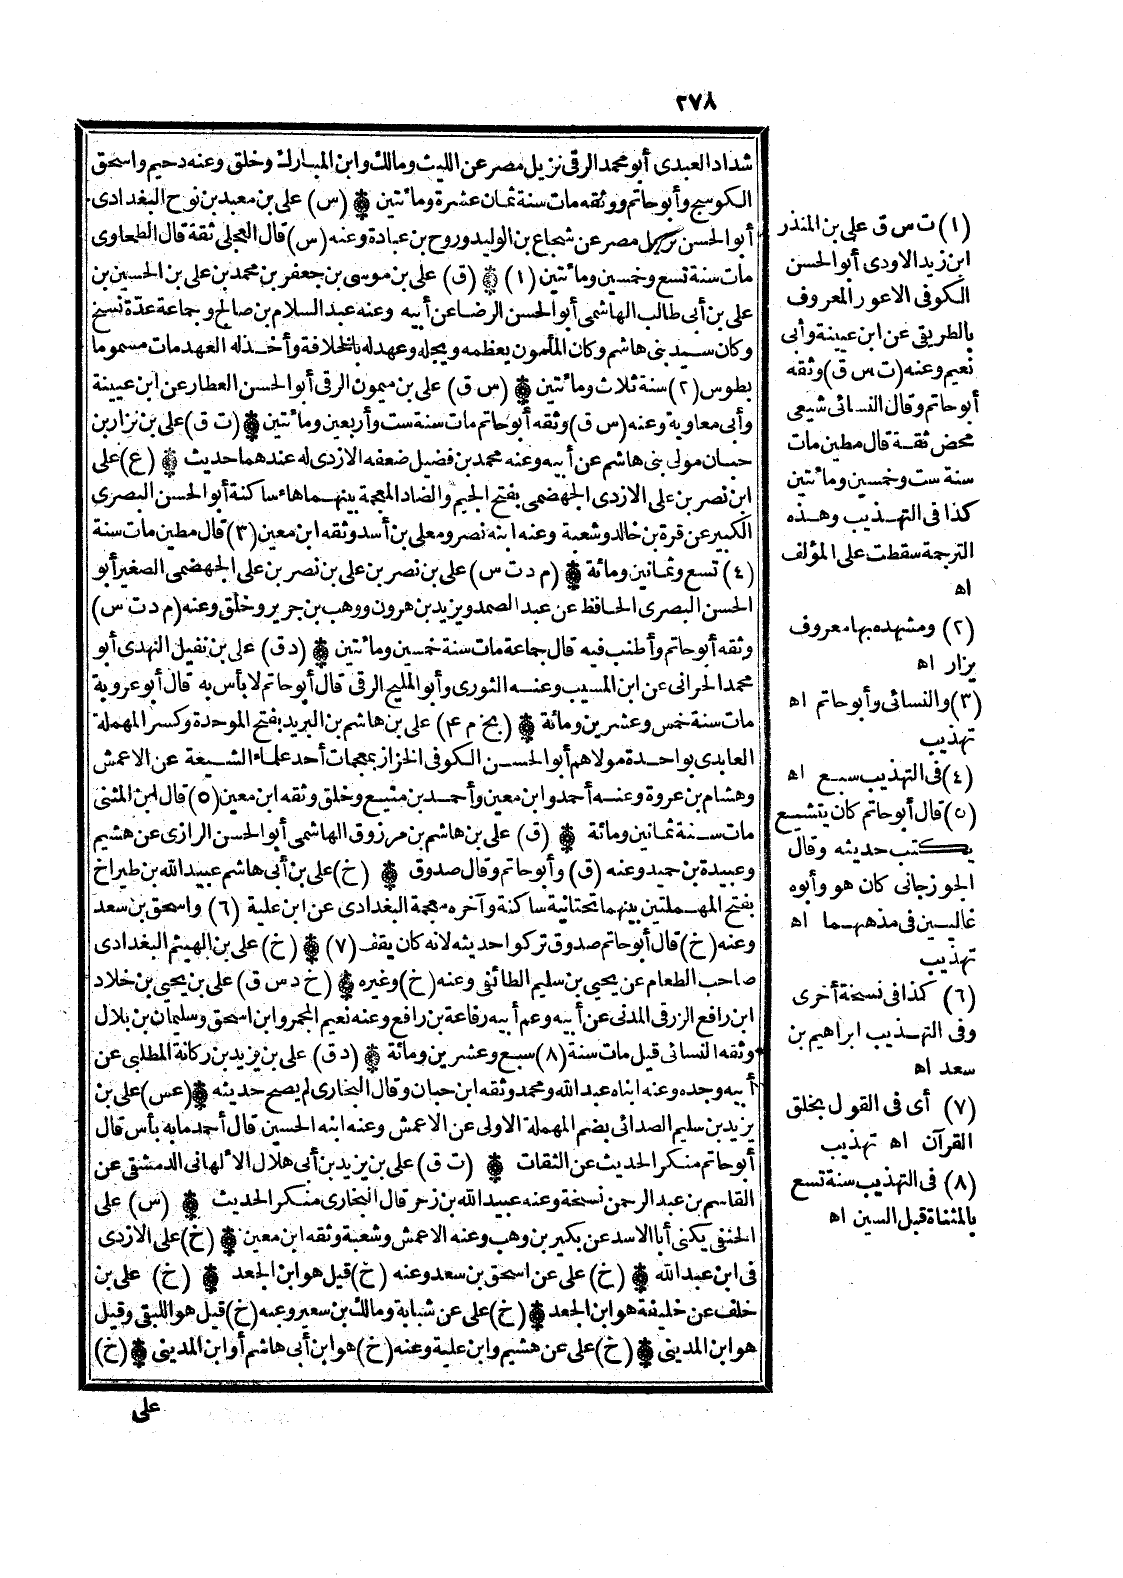 ٢٧٨
شداد العبدى أبو محمد الرقى نزيل مصر عن الليث ومالك وابن المبارك وخلق وعنه دحيم واسحق
الكوسج وأبو حاتم ووثقه مات سنة ثمان عشرة ومائتين ۞ (س) على بن معبد بن نوح البغدادى
أبو الحسن نزيل مصر عن شجاع بن الوليد وروح بن عبادة وعنه (س) قال العجلى ثقة قال الطحاوى
مات سنة تسع وخمسين ومائتين (١) ۞ (ق) على بن موسى بن جعفر بن محمد بن على بن الحسين بن
على بن أبى طالب الهاشمى أبو الحسن الرضا عن أبيه وعنه عبد السلام بن صالح وجماعة عدة نسخ
وكان سيد بنى هاشم وكان المأمون يعظمه ويجله وعهد له بالخلافة وأخذ له العهد مات مسموما
بطوس (٢) سنة ثلاث ومائتين ۞ (س ق) على بن ميمون الرقى أبو الحسن العطار عن ابن عيينة
وأبى معاوية وعنه (س ق) وثقه أبو حاتم مات سنة ست وأربعين ومائتين ۞ (ت ق) على بن نزار بن
حبان مولى بنى هاشم عن أبيه وعنه محمد بن فضيل ضعفه الازدى له عندهما حديث ۞ (ع) على
ابن نصر بن على الازدى الجهضمى بفتح الجيم والضاد المعجمة بينهما هاء ساكنة أبو الحسن البصرى
الكبير عن قرة بن خالد وشعبة وعنه ابنه نصر ومعلى بن أسد وثقه ابن معين (٣) قال مطين مات سنة
(٤) تسع وثمانين ومائة ۞ (م د ت س) على بن نصر بن على بن نصر بن على الجهضمى الصغير أبو
الحسن البصرى الحافظ عن عبد الصمد ويزيد بن هرون ووهب بن جرير وخلق وعنه (م د ت س)
وثقه أبو حاتم وأطنب فيه قال جماعة مات سنة خمسين ومائتين ۞ (د ق) على بن نفيل النهدى أبو
محمد الحرانى عن ابن المسيب وعنه الثورى وأبو المليح الرقى قال أبو حاتم لا بأس به قال أبو عروبة
مات سنة خمس وعشرين ومائة ۞ (بخ م ٤) على بن هاشم بن البريد بفتح الموحدة وكسر المهملة
العابدى بواحدة مولاهم أبو الحسن الكوفى الخزاز بمعجمات أحد علماء الشيعة عن الاعمش
وهشام بن عروة وعنه أحمد وابن معين وأحمد بن منيع وخلق وثقه ابن معين (٥) قال ابن المثنى
مات سنة ثمانين ومائة ۞ (ق) على بن هاشم بن مرزوق الهاشمى أبو الحسن الرازى عن هشيم
وعبيدة بن حميد وعنه (ق) وأبو حاتم وقال صدوق ۞ (خ) على بن أبى هاشم عبيد الله بن طيراخ
بفتح المهملتين بينهما تحتانية ساكنة وآخره معجمة البغدادى عن ابن علية (٦) واسحق بن سعد
وعنه (خ) قال أبو حاتم صدوق تركوا حديثه لانه كان يقف (٧) ۞ (خ) على بن الهيثم البغدادى
صاحب الطعام عن يحيى بن سليم الطائفى وعنه (خ) وغيره ۞ (خ د س ق) على بن يحيى بن خلاد
ابن رافع الزرقى المدنى عن أبيه وعم أبيه رفاعة بن رافع وعنه نعيم المجمر وابن اسحق وسليمان بن بلال
وثقه النسائى قيل مات سنة (٨) سبع وعشرين ومائة ۞ (د ق) على بن يزيد بن ركانة المطلبى عن
أبيه وجده وعنه ابناه عبد الله ومحمد وثقه ابن حبان وقال البخارى لم يصح حديثه ۞ (عس) على بن
يزيد بن سليم الصدائى بضم المهملة الاولى عن الاعمش وعنه ابنه الحسين قال أحمد ما به بأس قال
أبو حاتم منكر الحديث عن الثقات ۞ (ت ق) على بن يزيد بن أبى هلال الألهانى الدمشقى عن
القاسم بن عبد الرحمن نسخة وعنه عبيد الله بن زحر قال البخارى منكر الحديث ۞ (س) على
الحنفى يكنى أبا الاسد عن بكير بن وهب وعنه الاعمش وشعبة وثقه ابن معين ۞ (خ) على الازدى
فى ابن عبد الله ۞ (خ) على عن اسحق بن سعد وعنه (خ) قيل هو ابن الجعد ۞ (خ) على بن
خلف عن خليفة هو ابن الجعد ۞ (خ) على عن شبابة ومالك بن سعير وعنه (خ) قيل هو اللبقى وقيل
هو ابن المدينى ۞ (خ) على عن هشيم وابن علية وعنه (خ) هو ابن أبى هاشم أو ابن المدينى ۞ (خ)
على
(١) ت س ق على بن المنذر
ابن زيد الاودى أبو الحسن
الكوفى الاعور المعروف
بالطريقى عن ابن عيينة وأبى
نعيم وعنه (ت س ق) وثقه
أبو حاتم وقال النسائى شيعى
محض ثقة قال مطين مات
سنة ست وخمسين ومائتين
كذا فى التهذيب وهذه
الترجمة سقطت على المؤلف
اه
(٢) ومشهده بها معروف
يزار اه
(٣) والنسائى وأبو حاتم اه
تهذيب
(٤) فى التهذيب سبع اه
(٥) قال أبو حاتم كان يتشيع
يكتب حديثه وقال
الجوزجانى كان هو وأبوه
غاليين فى مذهبهما اه
تهذيب
(٦) كذا فى نسخة أخرى
وفى التهذيب ابراهيم بن
سعد اه
(٧) أى فى القول بخلق
القرآن اه تهذيب
(٨) فى التهذيب سنة تسع
بالمثناة قبل السين اه